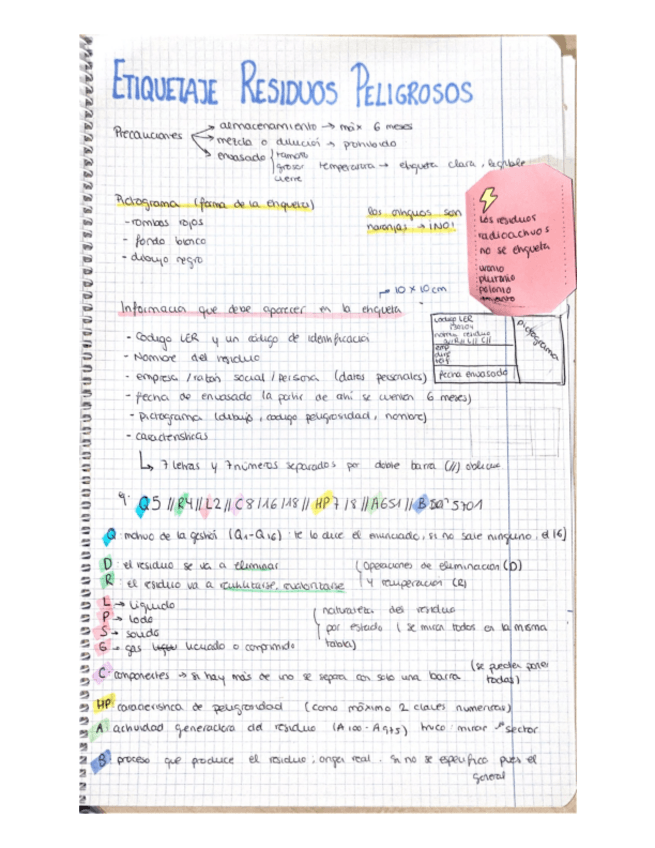 ETIQUETAJE RESIDUOS PELIGROSOS
Precauciones
almacenamiento → máx 6 meses
mezcla o dilución → prohibido
envasado
tamaño
grosor
cierre
temperatura → etiqueta clara, legible
Pictograma (forma de la etiqueta)
- rombos rojos
- fondo blanco
- dibujo negro
los antiguos son
naranjas → ¡NO!
los residuos
radioactivos
no se etiqueta
uranio
plutonio
polonio
→ 10 x 10 cm
Información que debe aparecer en la etiqueta
- Código LER y un código de identificación
- Nombre del residuo
- empresa / razón social / persona (datos personales)
- fecha de envasado (a partir de ahí se cuentan 6 meses)
- Pictograma (dibujo, código peligrosidad, nombre)
- características
código LER
nombre residuo
fecha envasado
Pictograma
↳ 7 letras y 7 números separados por doble barra (//) oblicua
Q5 // R4 // L2 // C8/16/18 // HP7/8 // A651 // B 5701
Q: motivo de la gestión (Q1-Q16): te lo dice el enunciado, si no sale ninguno, el 16)
D: el residuo se va a eliminar
R: el residuo va a reutilizarse, valorizarse
(operaciones de eliminación (D)
y recuperación (R)
L → líquido
P → lodo
S → solido
G → gas licuado o comprimido
(naturaleza del residuo
por estado (se miran todos en la misma
tabla)
C: componentes → si hay más de uno se separa con solo una barra
(se pueden poner
todas)
HP: característica de peligrosidad (como máximo 2 claves numéricas)
A: actividad generadora del residuo (A100-A975) truco: mirar sector
B: proceso que produce el residuo; origen real. Si no se especifica pues el
general